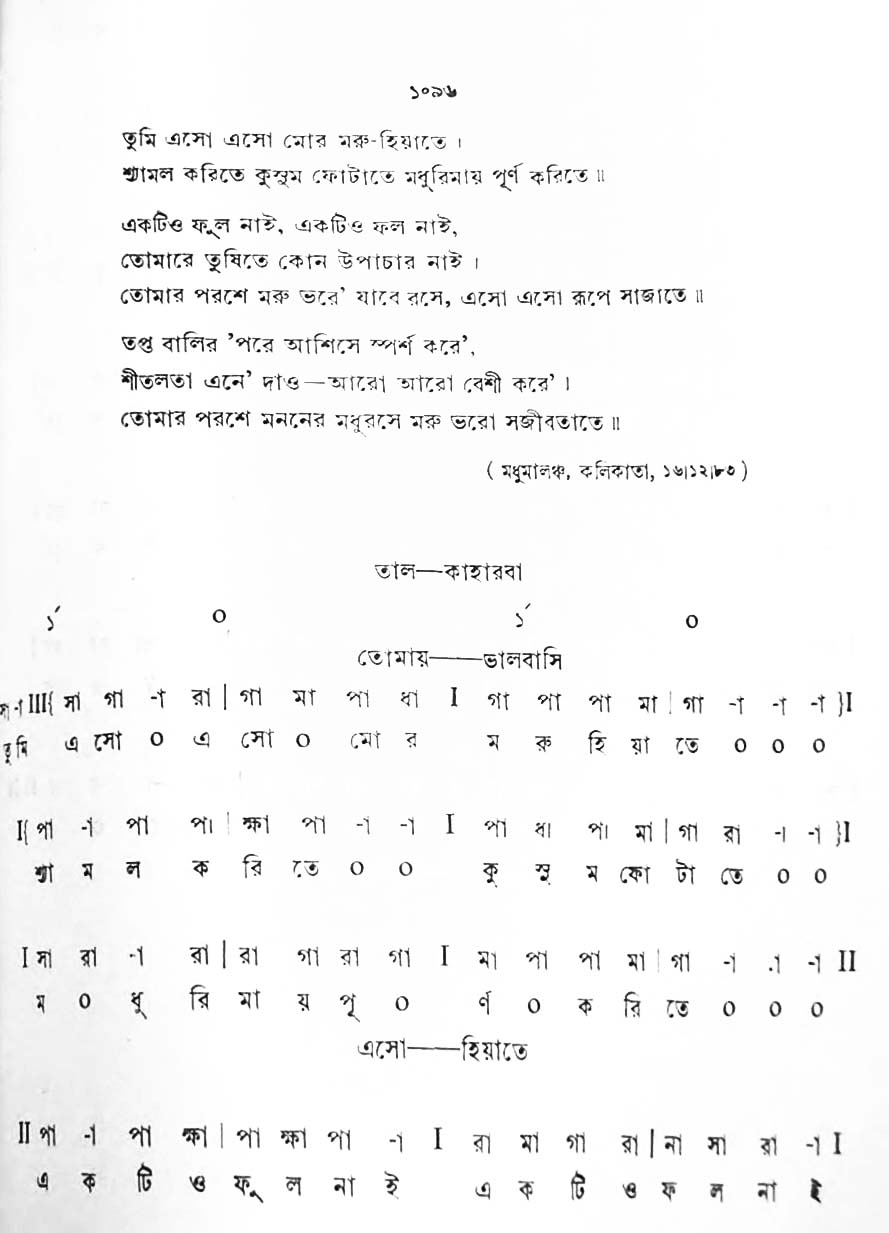 ১০৯৬
তুমি এসো এসো মোর মরু-হিয়াতে ।
শ্যামল করিতে কুসুম ফোটাতে মধুরিমায় পূর্ণ করিতে ॥
একটিও ফুল নাই, একটিও ফল নাই,
তোমারে তুষিতে কোন উপাচার নাই ।
তোমার পরশে মরু ভরে’ যাবে রসে, এসো এসো রূপে সাজাতে ॥
তপ্ত বালির ’পরে আশিসে স্পর্শ করে’,
শীতলতা এনে’ দাও—আরো আরো বেশী করে’ ।
তোমার পরশে মননের মধুরসে মরু ভরো সজীবতাতে ॥
( মধুমালঞ্চ, কলিকাতা, ১৬।১২।৮৩ )
তাল—কাহারবা
১´ ০ ১´ ০
তোমায়——ভালবাসি
সা -া III{ সা গা -া রা | গা মা পা ধা I গা পা পা মা | গা -া -া -া }I
তুমি এ সো ০ এ সো ০ মো র ম রু হি য়া তে ০ ০ ০
I{ পা -া পা পা | ক্ষা পা -া -া I পা ধা পা মা | গা রা -া -া }I
শ্যা ম ল ক রি তে ০ ০ কু সু ম ফো টা তে ০ ০
I সা রা -া রা | রা গা রা গা I মা পা পা মা | গা -া -া -া II
ম ০ ধু রি মা য় পূ ০ র্ণ ০ ক রি তে ০ ০ ০
এসো——হিয়াতে
II পা -া পা ক্ষা | পা ক্ষা পা -া I রা মা গা রা | না সা রা -া I
এ ক টি ও ফু ল না ই এ ক টি ও ফ ল না ই